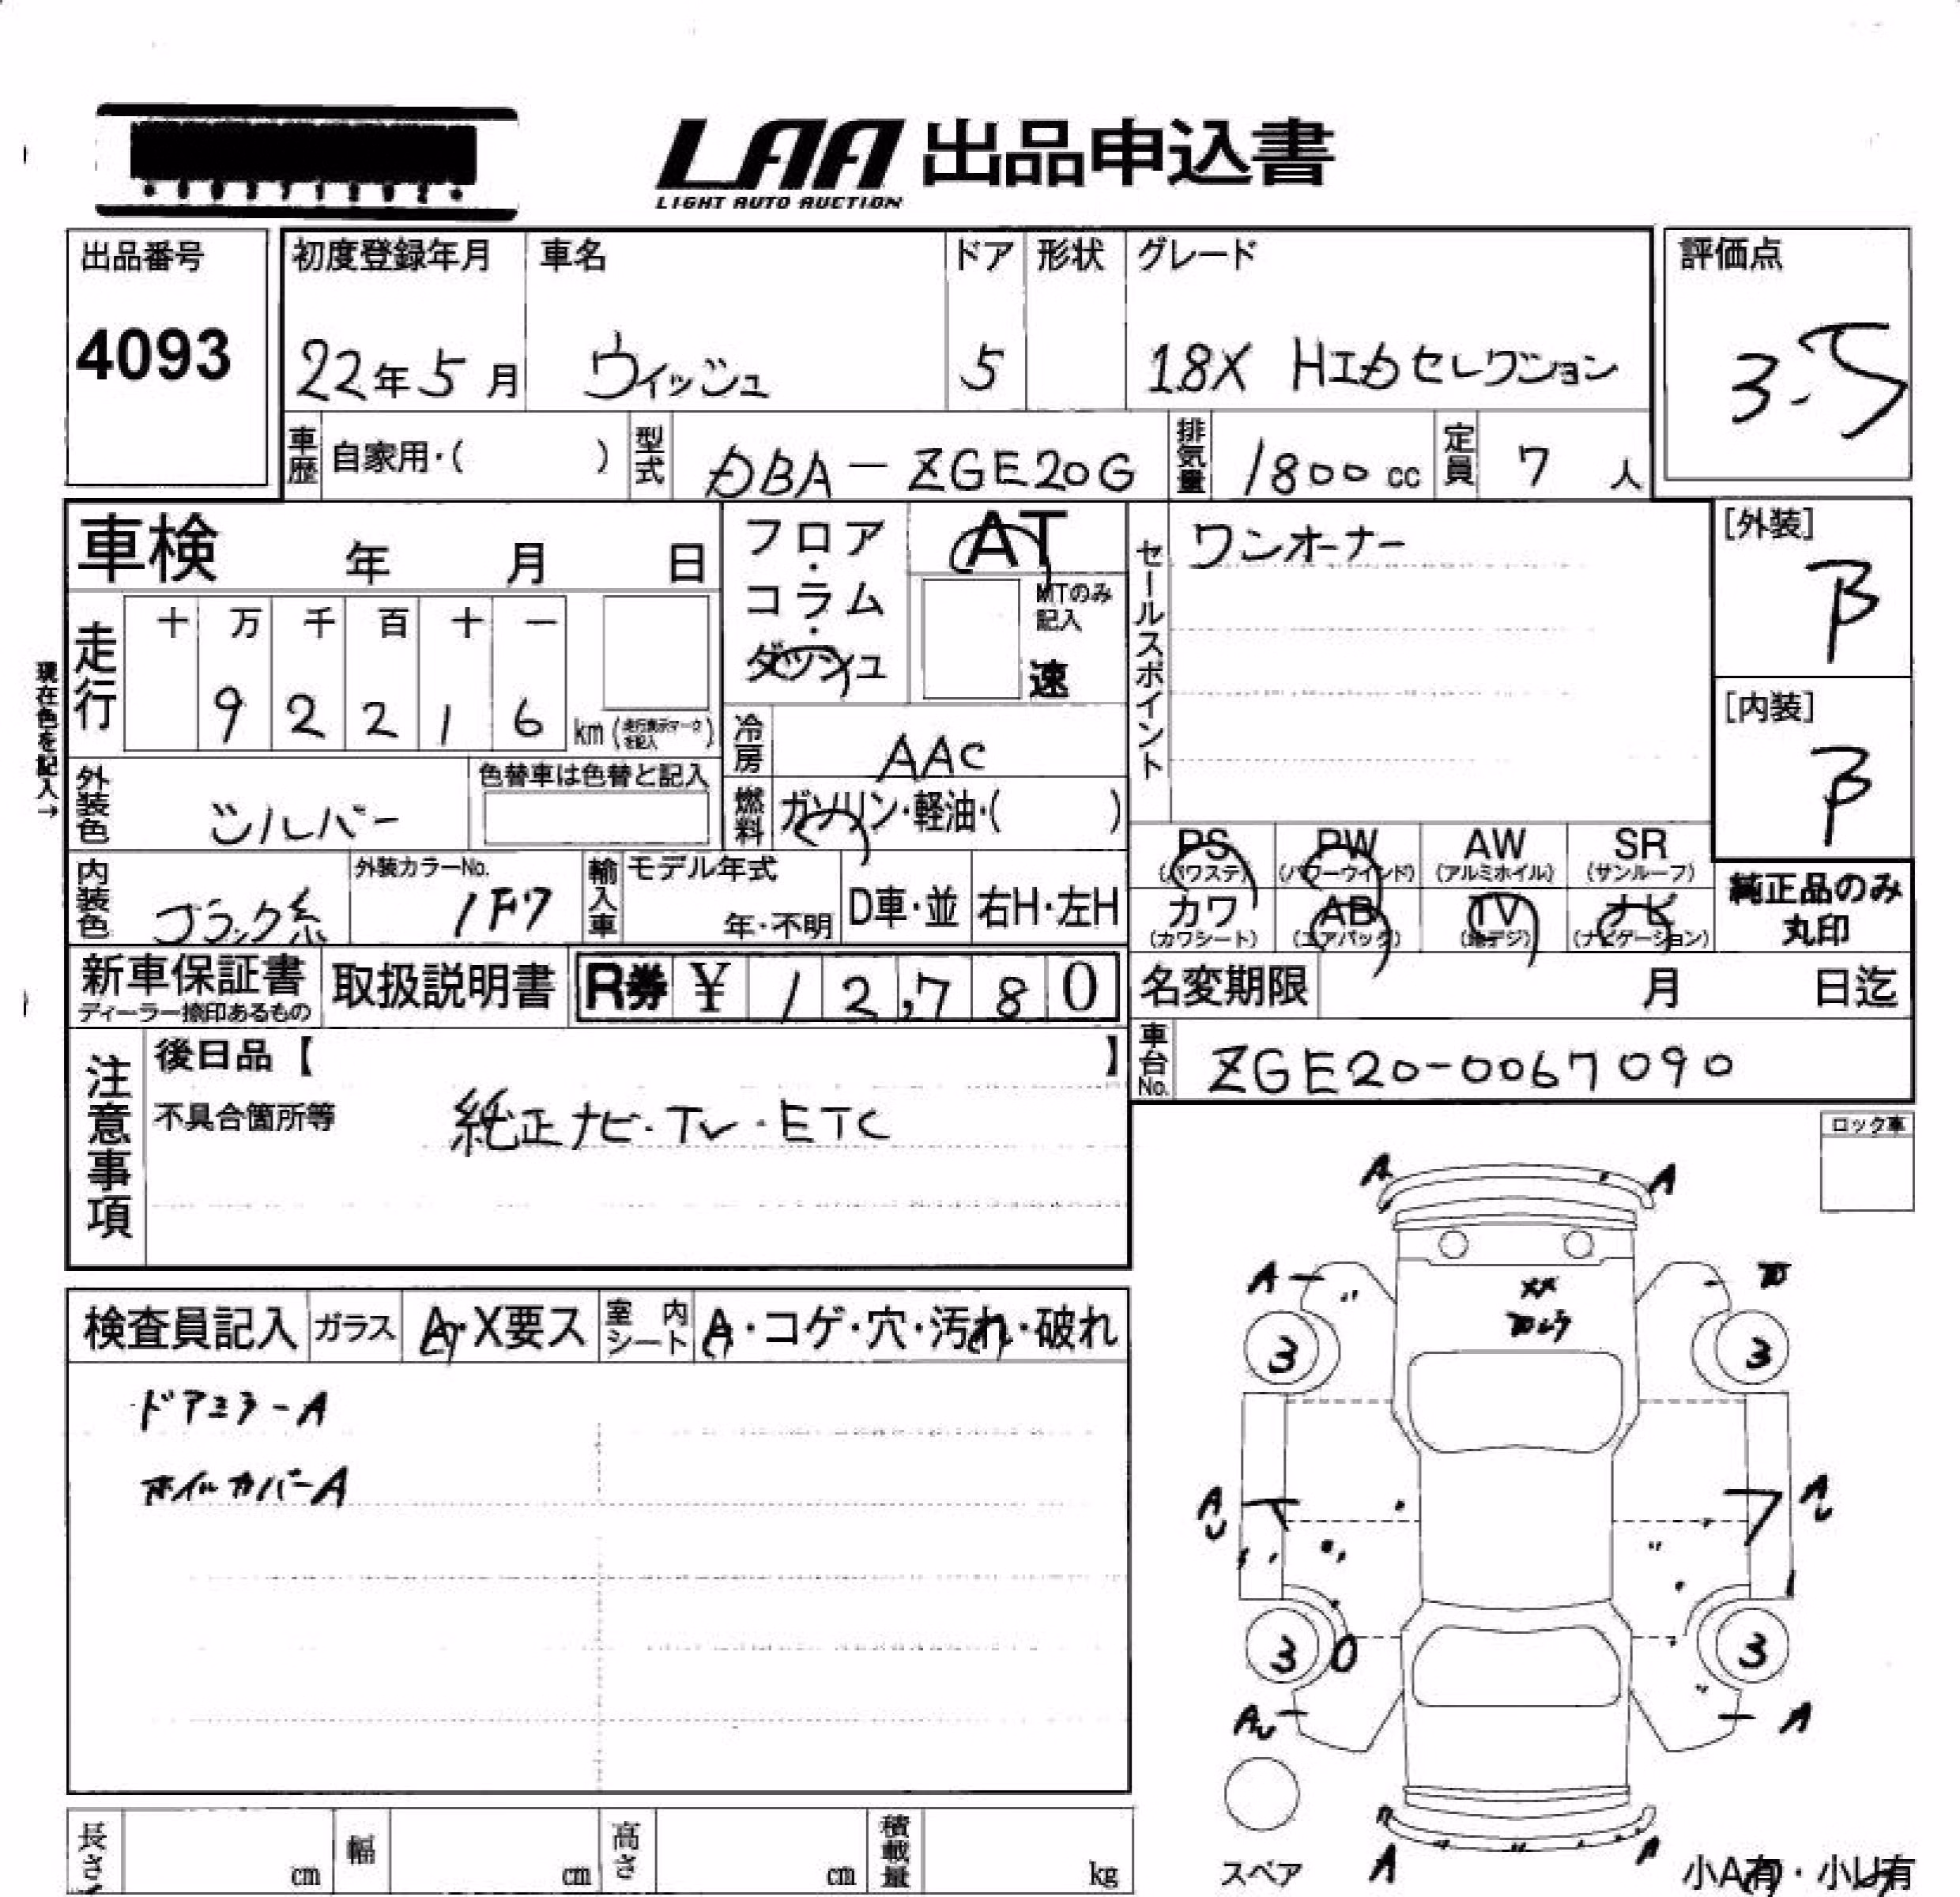 LAA 出品申込書
LIGHT AUTO AUCTION
出品番号
4093
初度登録年月 車名 ドア 形状 グレード
22年5月 ウィッシュ 5 1.8X HIDセレクション
評価点
3.5
車歴 自家用・( ) 型式 DBA-ZGE20G 排気量 1800cc 定員 7人
車検 年 月 日
フロア・コラム・ダッシュ
AT
MTのみ記入
速
セールスポイント
ワンオーナー
[外装]
B
[内装]
B
現在色を記入→
走行 十 万 千 百 十 一
9 2 2 1 6 km (走行表示マークを記入)
冷房 AAC
外装色 シルバー 色替車は色替と記入
燃料 ガソリン・軽油・( )
PS (パワステ) PW (パワーウインド) AW (アルミホイル) SR (サンルーフ)
カワ (カワシート) AB (エアバック) TV (地デジ) ナビ (ナビゲーション)
純正品のみ丸印
内装色 ブラック系 外装カラーNo. 1F7 輸入車 モデル年式 年・不明 D車・並 右H・左H
新車保証書 ディーラー捺印あるもの 取扱説明書 R券 ¥ 12,780
名変期限 月 日迄
車台No. ZGE20-0067090
注意事項
後日品【 】
不具合箇所等 純正ナビ・TV・ETC
ロック車
検査員記入 ガラス A・X要ス 室内シート A・コゲ・穴・汚れ・破れ
ドアミラーA
ホイルカバーA
A A
A
XX
3 3
A A
3 3
A A
A A
スペア
小A有・小U有
長さ cm 幅 cm 高さ cm 積載量 kg